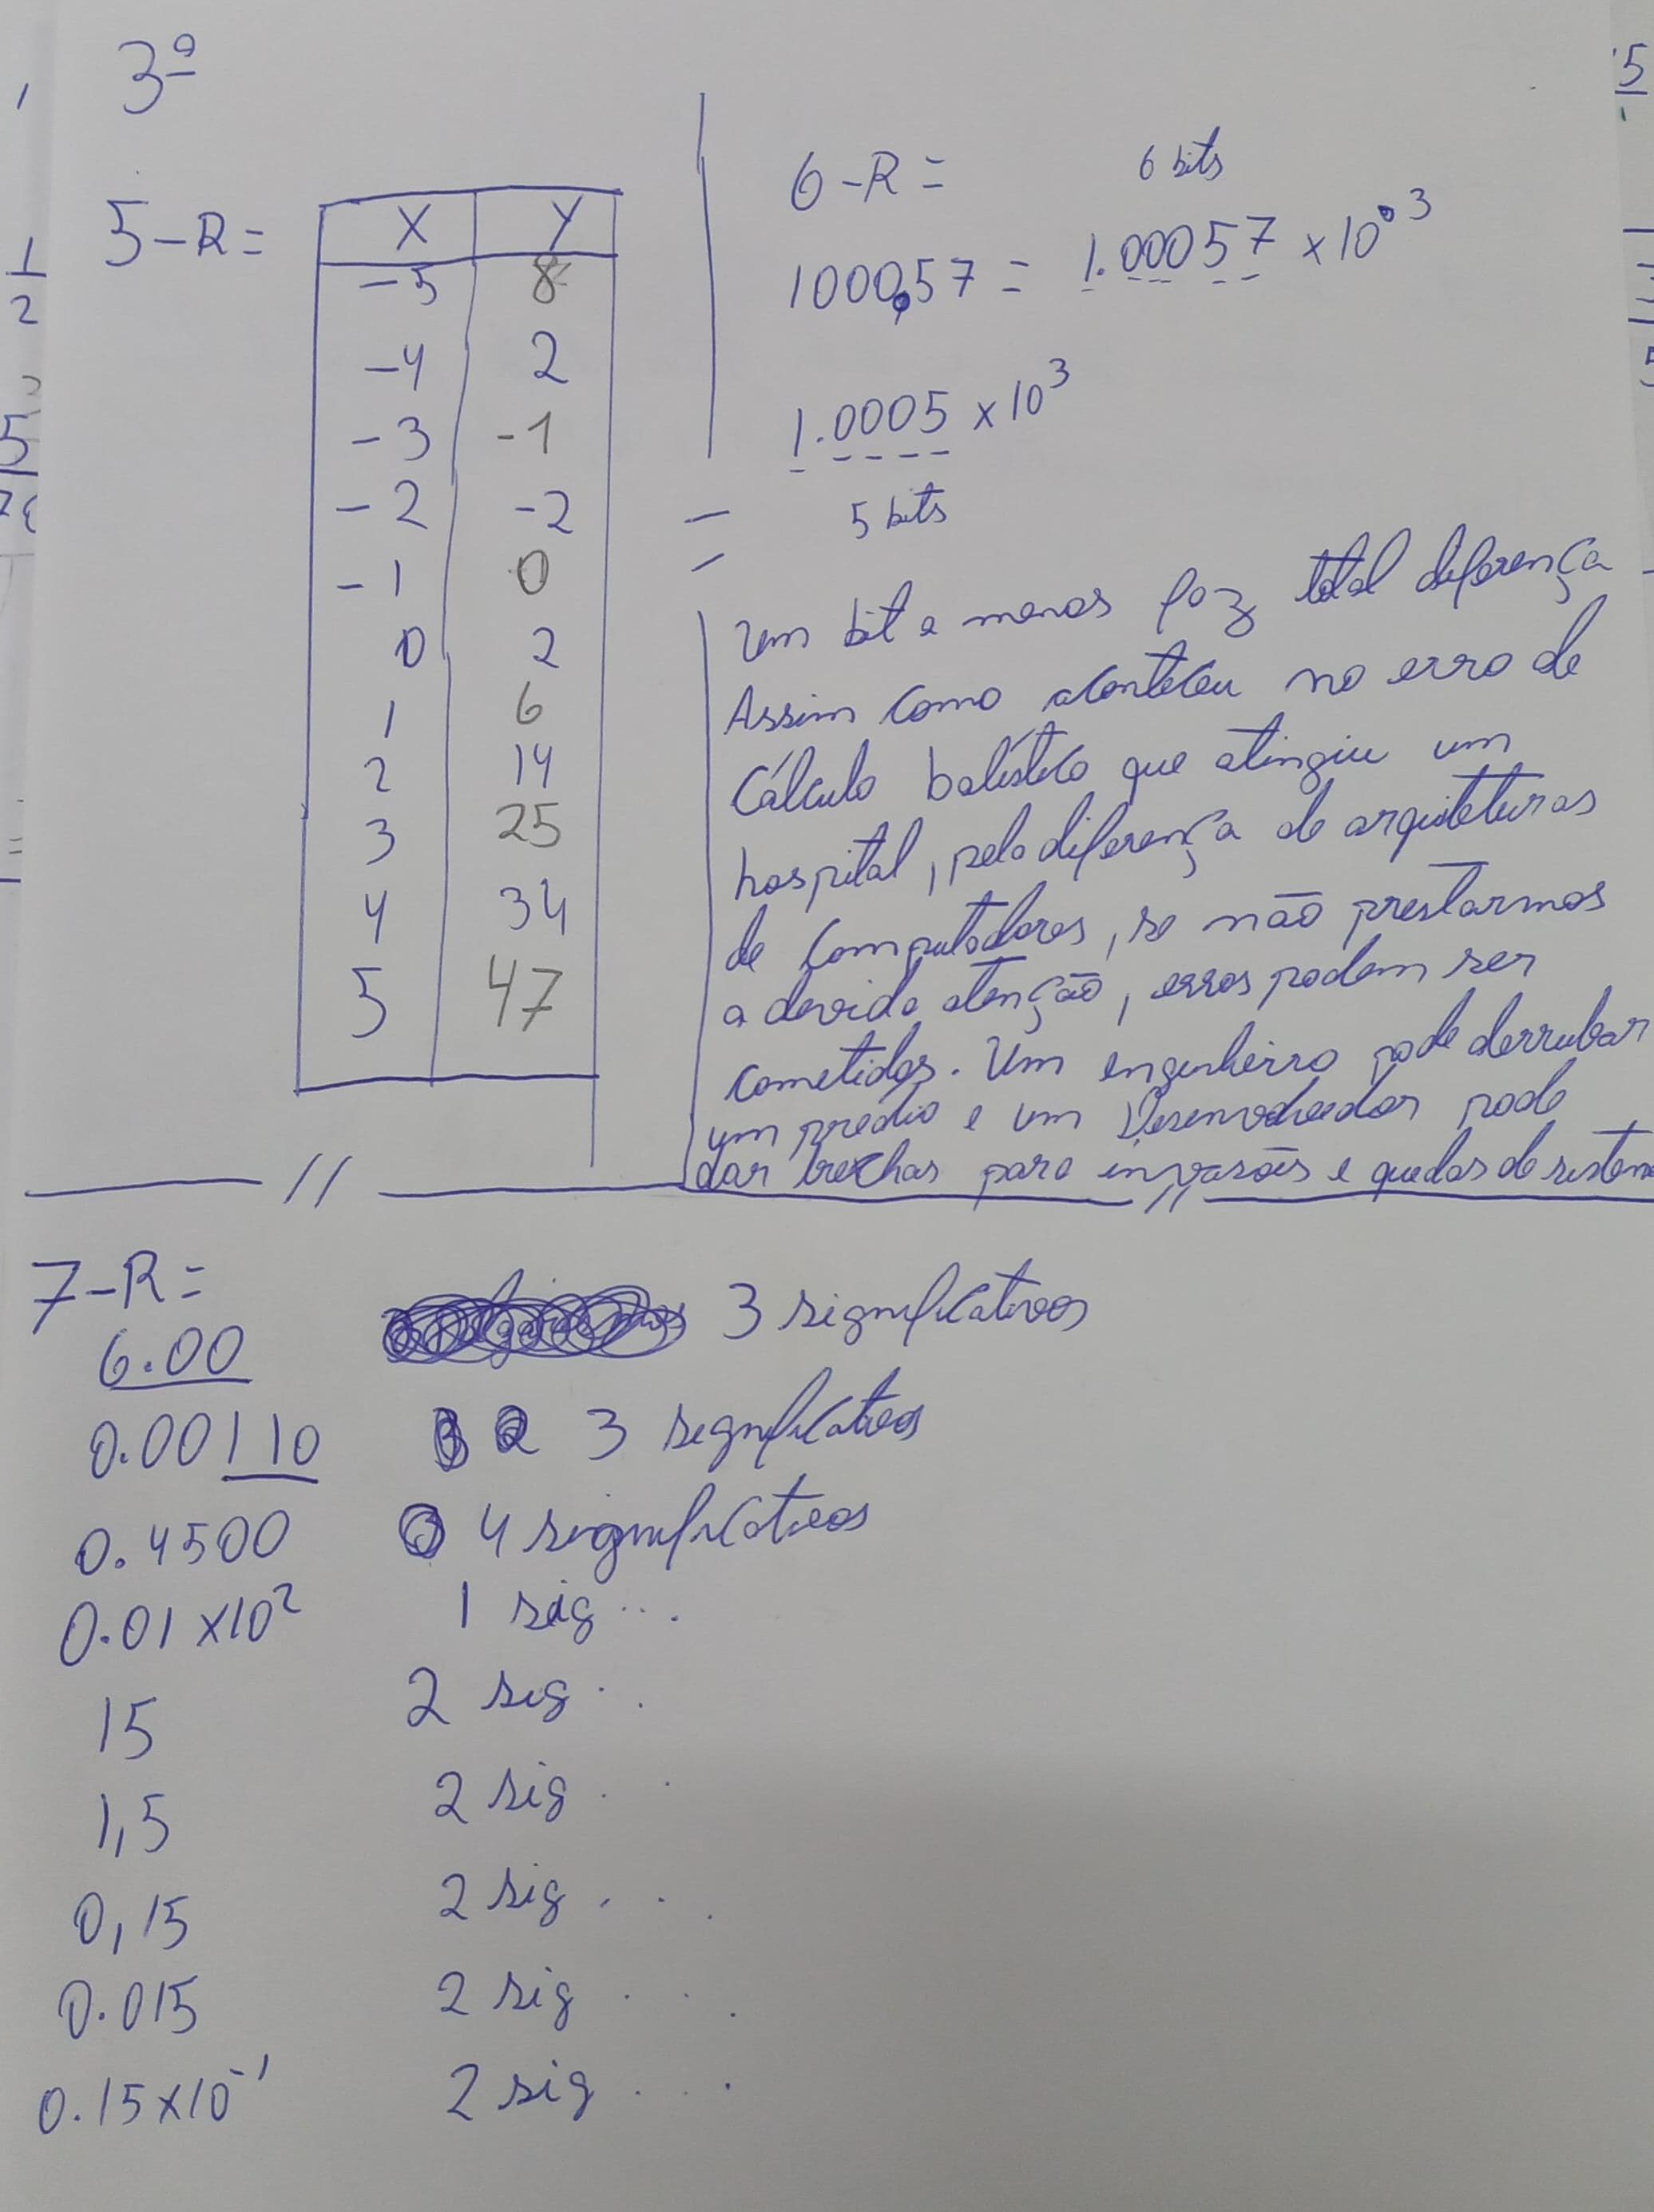 3ª
5-R=
X Y
-5 8
-4 2
-3 -1
-2 -2
-1 0
0 2
1 6
2 14
3 25
4 34
5 47
6-R=
6 bits
1000,57 = 1.00057 x 10³
1.0005 x 10³
5 bits
Um bit a menos faz total diferença
Assim como aconteceu no erro de
Cálculo balístico que atingiu um
hospital, pela diferença de arquiteturas
de Computadores, se não prestarmos
a devida atenção, erros podem ser
cometidos. Um engenheiro pode derrubar
um prédio e um Desenvolvedor pode
dar brechas para invasões e quedas de sistema
7-R=
6.00 3 significativos
0.00110 3 significativos
0.4500 4 significativos
0.01 x10² 1 sig...
15 2 sig...
1,5 2 sig...
0,15 2 sig...
0.015 2 sig...
0.15x10⁻¹ 2 sig...